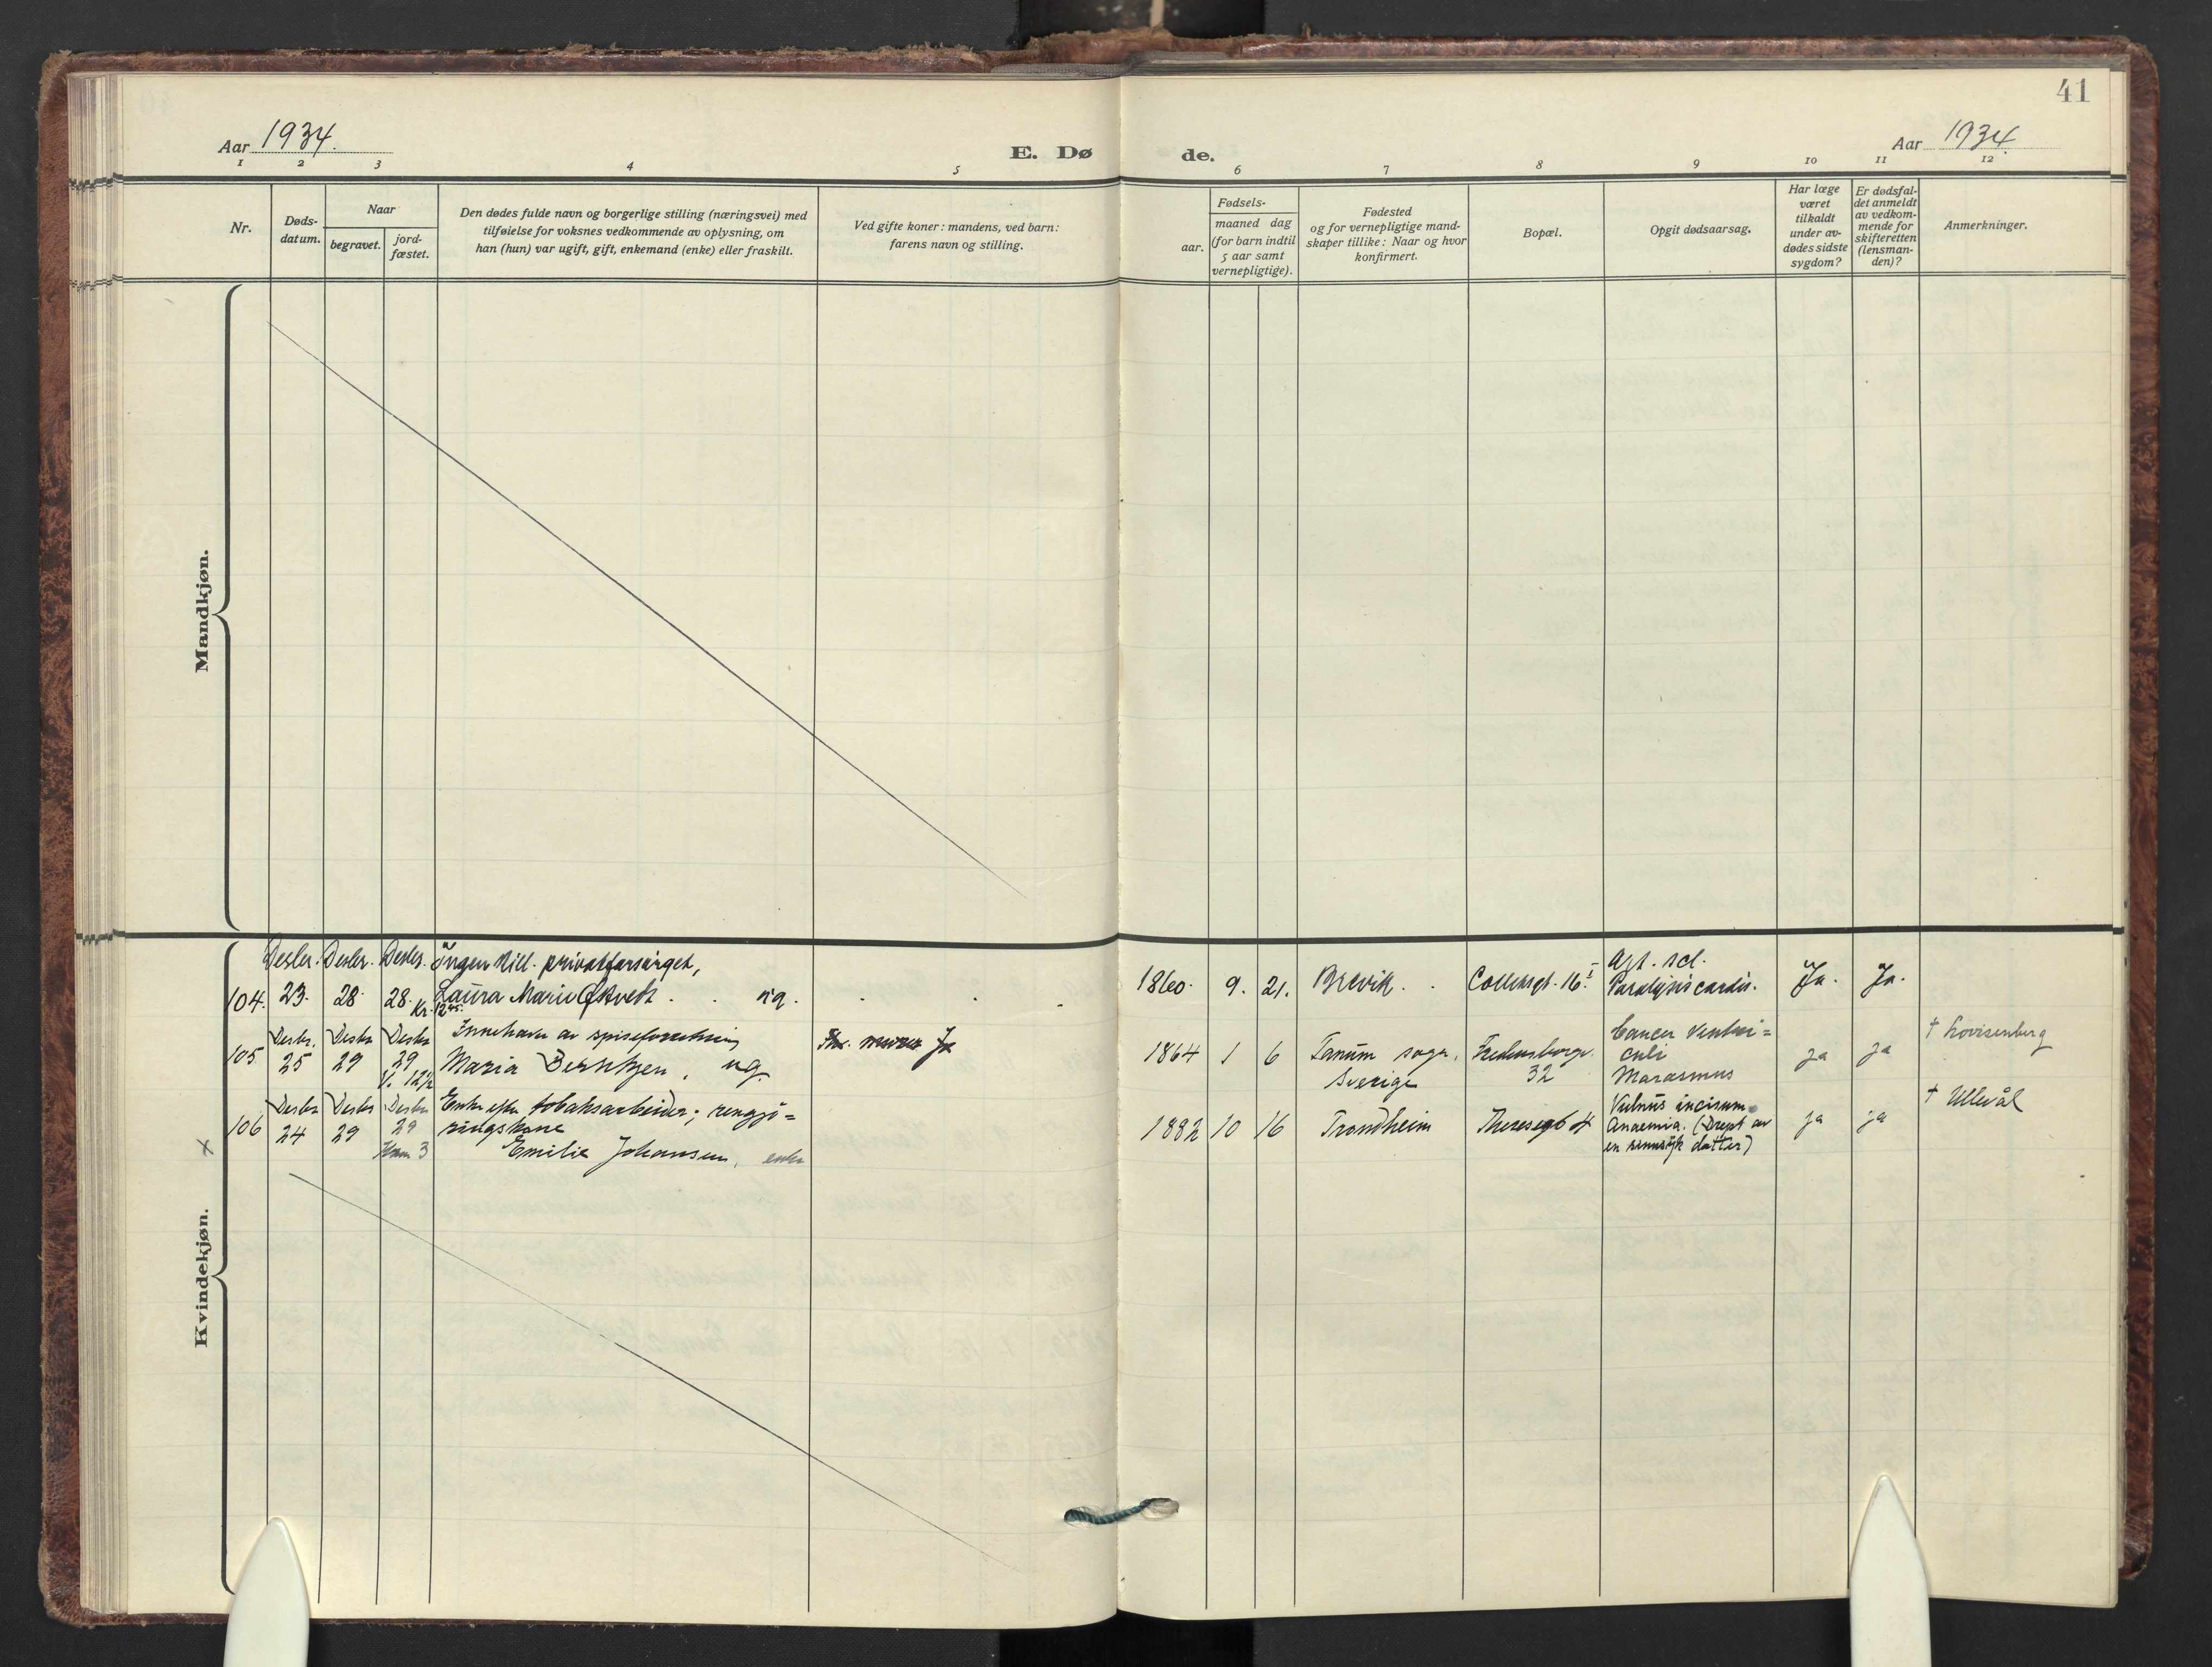 41
Aar 1934.
E. Dø de.
Aar 1934.
1 2 3 4 5 6 7 8 9 10 11 12
Nr.
Døds-
datum.
Naar
begravet.
jord-
fæstet.
Den dødes fulde navn og borgerlige stilling (næringsvei) med
tilføielse for voksnes vedkommende av oplysning, om
han (hun) var ugift, gift, enkemand (enke) eller fraskilt.
Ved gifte koner: mandens, ved barn:
farens navn og stilling.
Fødsels-
aar.
maaned dag
(for barn indtil
5 aar samt
vernepligtige).
Fødested
og for vernepligtige mand-
skaper tillike: Naar og hvor
konfirmert.
Bopæl.
Opgit dødsaarsag.
Har læge
været
tilkaldt
under av-
dødes sidste
sygdom?
Er dødsfal-
det anmeldt
av vedkom-
mende for
skifteretten
(lensman-
den)?
Anmerkninger.
Mandkjøn.
Kvindekjøn.
Desbr. Desbr. Desbr. Ingen still. privatforsørget,
104. 23. 28. 28. Laura Marie ug.
Kr. 12
1860. 9. 21. Brevik. Collettsgt. 16 I
Art. scl.
Paralysis cordis.
Ja. Ja.
Desbr. Desbr Desbr Innehaver av spiseforretning
105 25 29 29 Maria Berntzen, ug.
V. 12½
1864 1 6 Tanum sogn,
Sverige
Fredensborgv.
32
Cancer ventri=
culi
Marasmus
ja ja
† Lovisenberg
Desbr Desbr Desbr Enke efter tobaksarbeider; rengjø=
106 24 29 29 ringskone
x Kam 3 Emilie Johansen, enke
1882 10 16 Trondheim Theresegt 4
Vulnus incisum.
Anaemia. (Drept av
en sinnsyk datter)
ja ja
† Ullevål